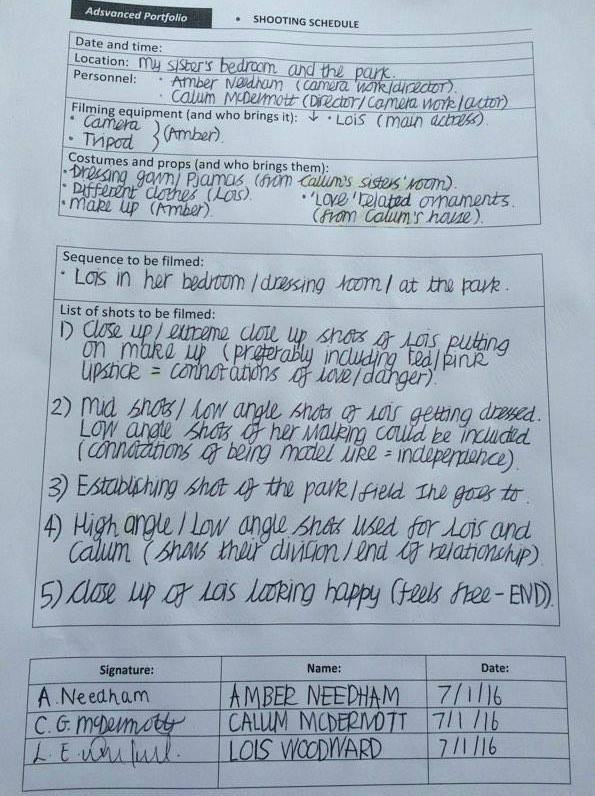 Adsvanced Portfolio
• SHOOTING SCHEDULE
Date and time:
Location: My sister's bedroom and the park.
Personnel: • Amber Needham (camera work/director).
• Calum McDermott (Director/Camera work/actor)
Filming equipment (and who brings it): ↓ • Lois (main actress).
• Camera
• Tripod } (Amber).
Costumes and props (and who brings them):
• Dressing gown/Pjamas (from Callum's sisters' room).
• Different clothes (Lois). • 'Love' related ornaments.
• Make up (Amber). (from Calum's house).
Sequence to be filmed:
• Lois in her bedroom/dressing room/ at the park.
List of shots to be filmed:
1) Close up/ extreme close up shots of Lois putting
on make up (preferably including red/pink
lipstick = connotations of love/danger).
2) Mid shots/ low angle shots of Lois getting dressed.
Low angle shots of her walking could be included
(connotations of being model like = independence).
3) Establishing shot of the park/field she goes to.
4) High angle/Low angle shots used for Lois and
Calum (shows their division/end of relationship)
5) Close up of Lois looking happy (feels free - END).
Signature: Name: Date:
A. Needham AMBER NEEDHAM 7/1/16
C. G. McDermott CALUM MCDERMOTT 7/1/16
L. E. LOIS WOODWARD 7/1/16